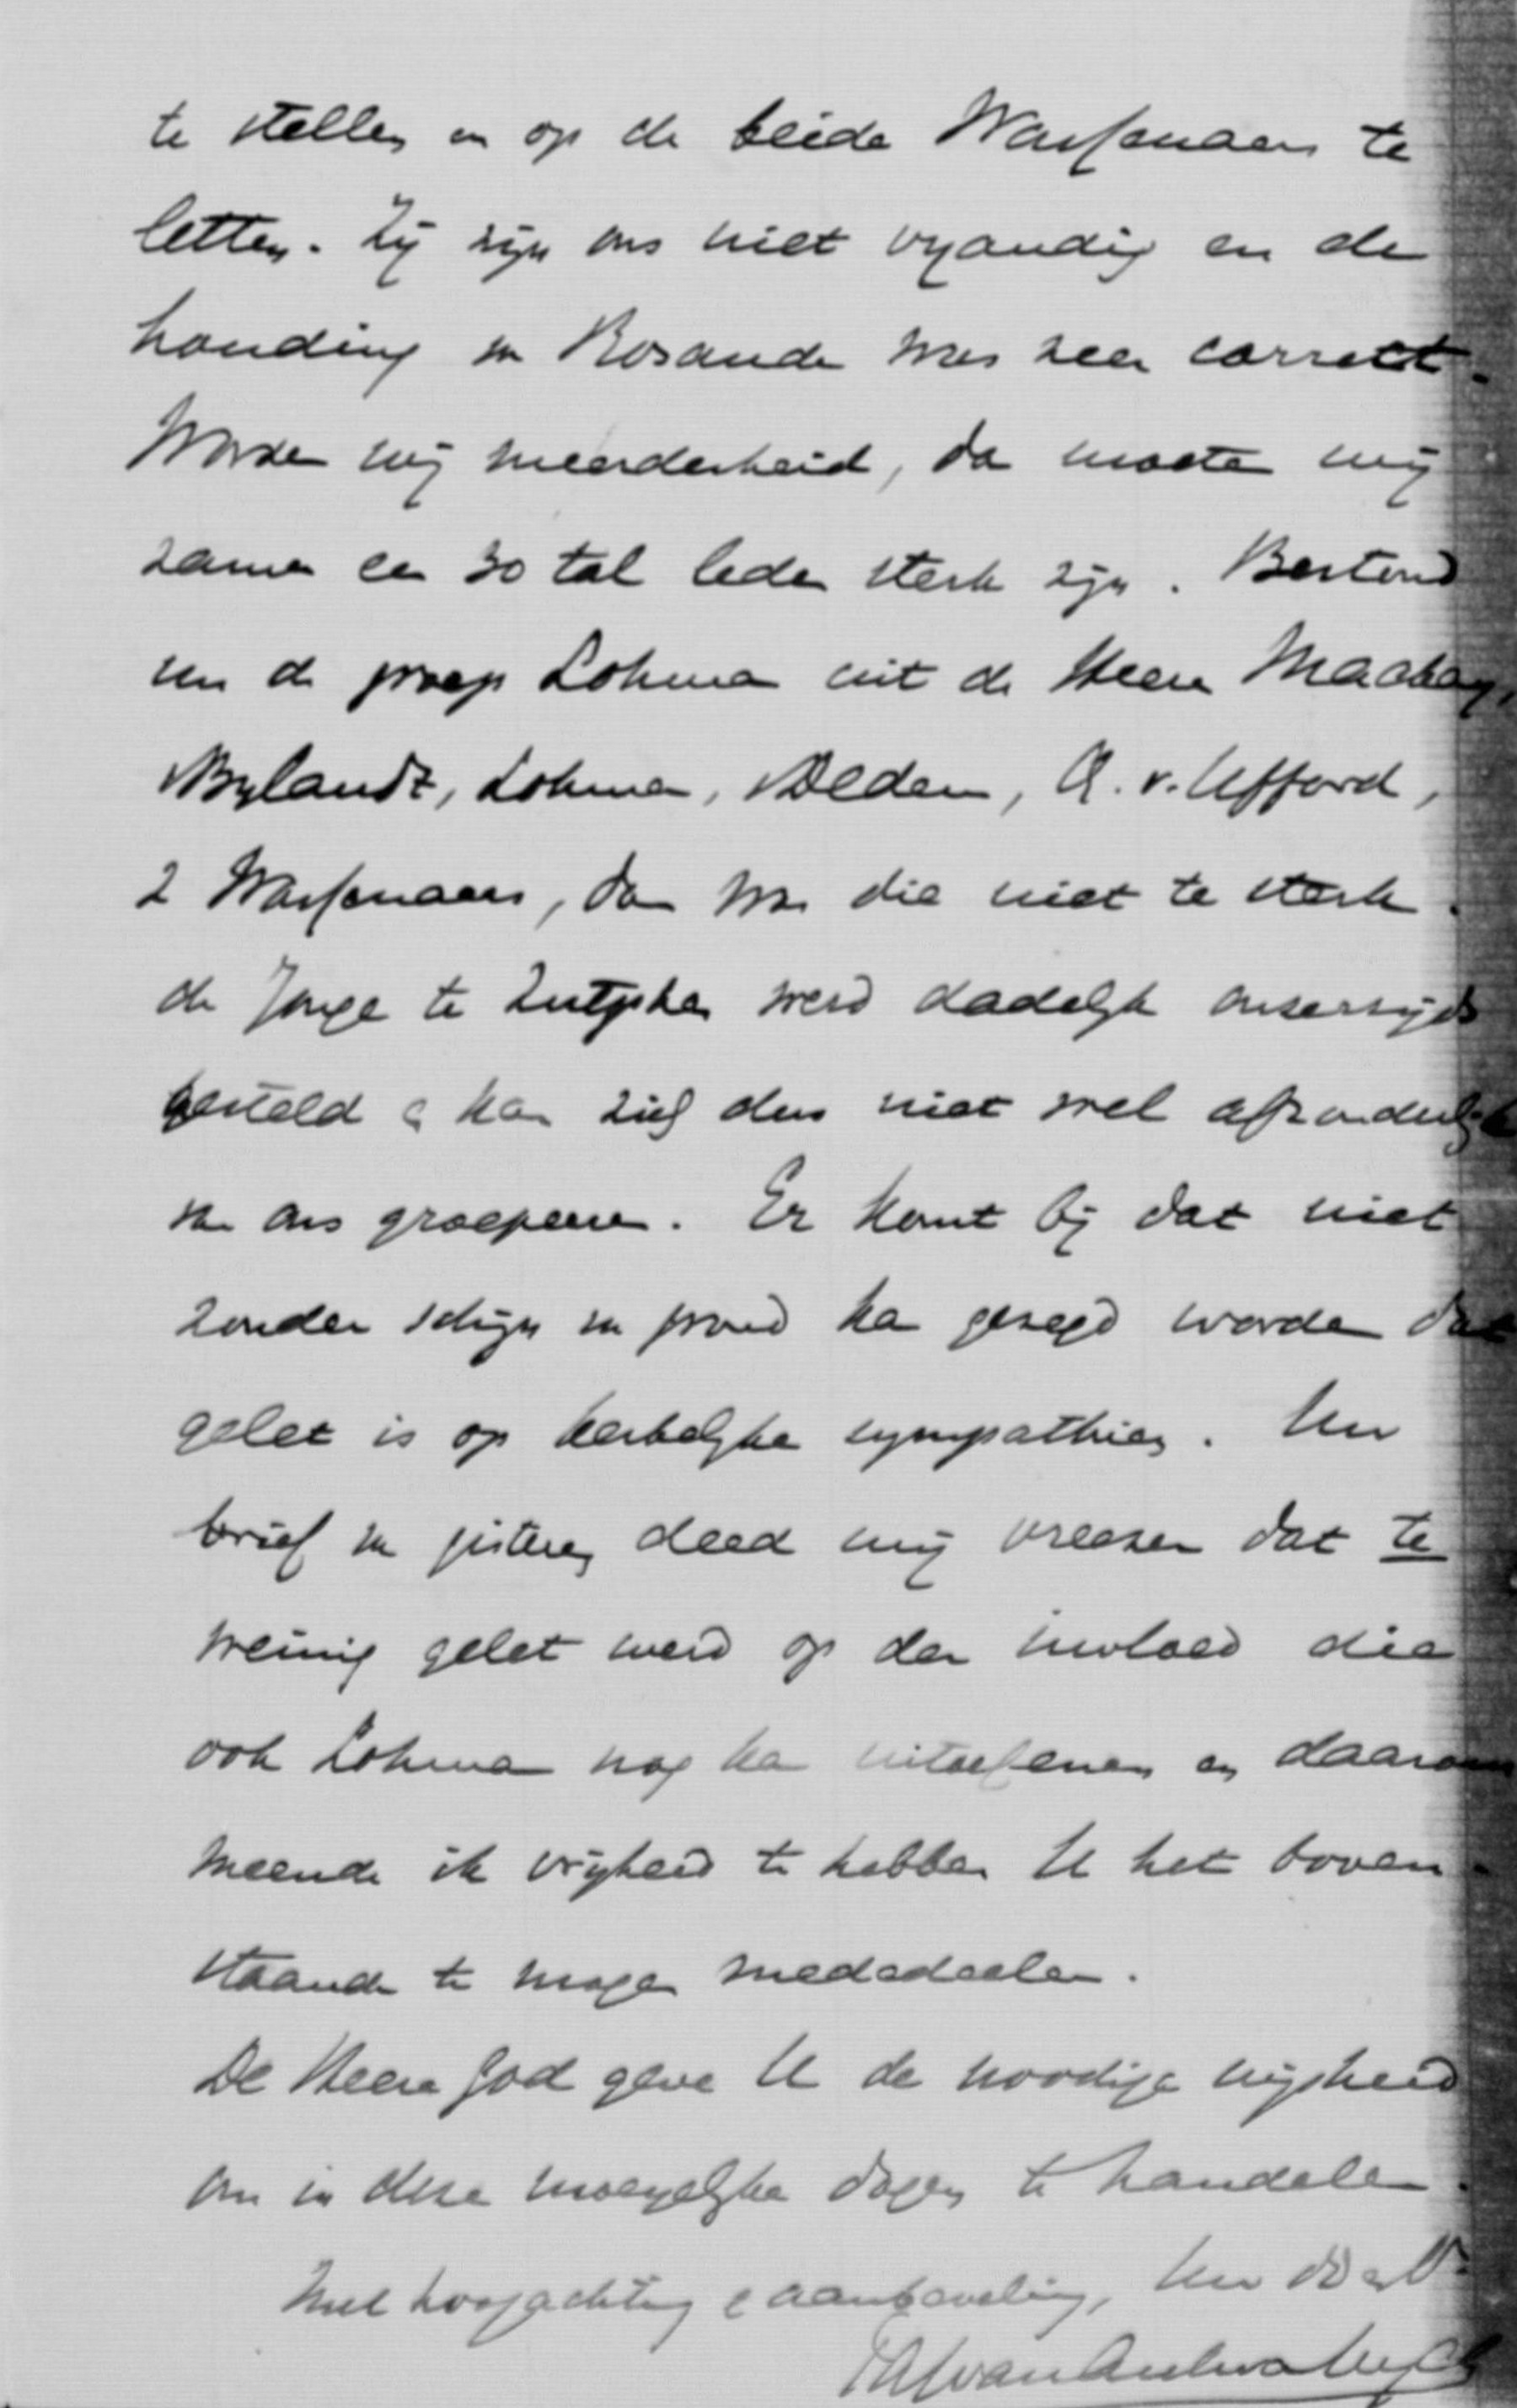 te stellen en op de beide Wassenaers te
letten. Zij zijn ons niet vyandig en de
houding van Rosande was zeer correct.
Worden wij meerderheid, dan moeten wij
samen een 30 tal leden sterk zijn. Bestond
nu de groep Lohman uit de Heeren Mackay,
v Bylandt, Lohman, v Dedem, Q. v. Ufford,
2 Wassenaers, dan was die niet te sterk.
de Jonge te Zutphen werd dadelijk onzerzijds
gesteld & kan zich dus niet wel afzonderlijk
van ons groepeeren. Er komt bij dat niet
zonder schijn van grond kan gezegd worden dat
gelet is op kerkelijke sympathien. Uw
brief van gisteren deed mij vreezen dat te
weinig gelet werd op den invloed die
ook Lohman nog kan uitoefenen en daarom
meende ik vrijheid te hebben U het boven-
staande te mogen mededeelen.
De Heere God geve U de noodige wijsheid
om in deze moeyelijke dagen te handelen.
Met hoogachting & aanbeveling, Uw